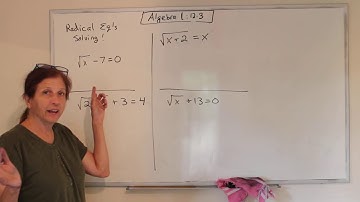 Algebra 1: 12.3
Radical Eq's
Solving!
√x - 7 = 0
√x+2 = x
√2 + 3 = 4
√x + 13 = 0